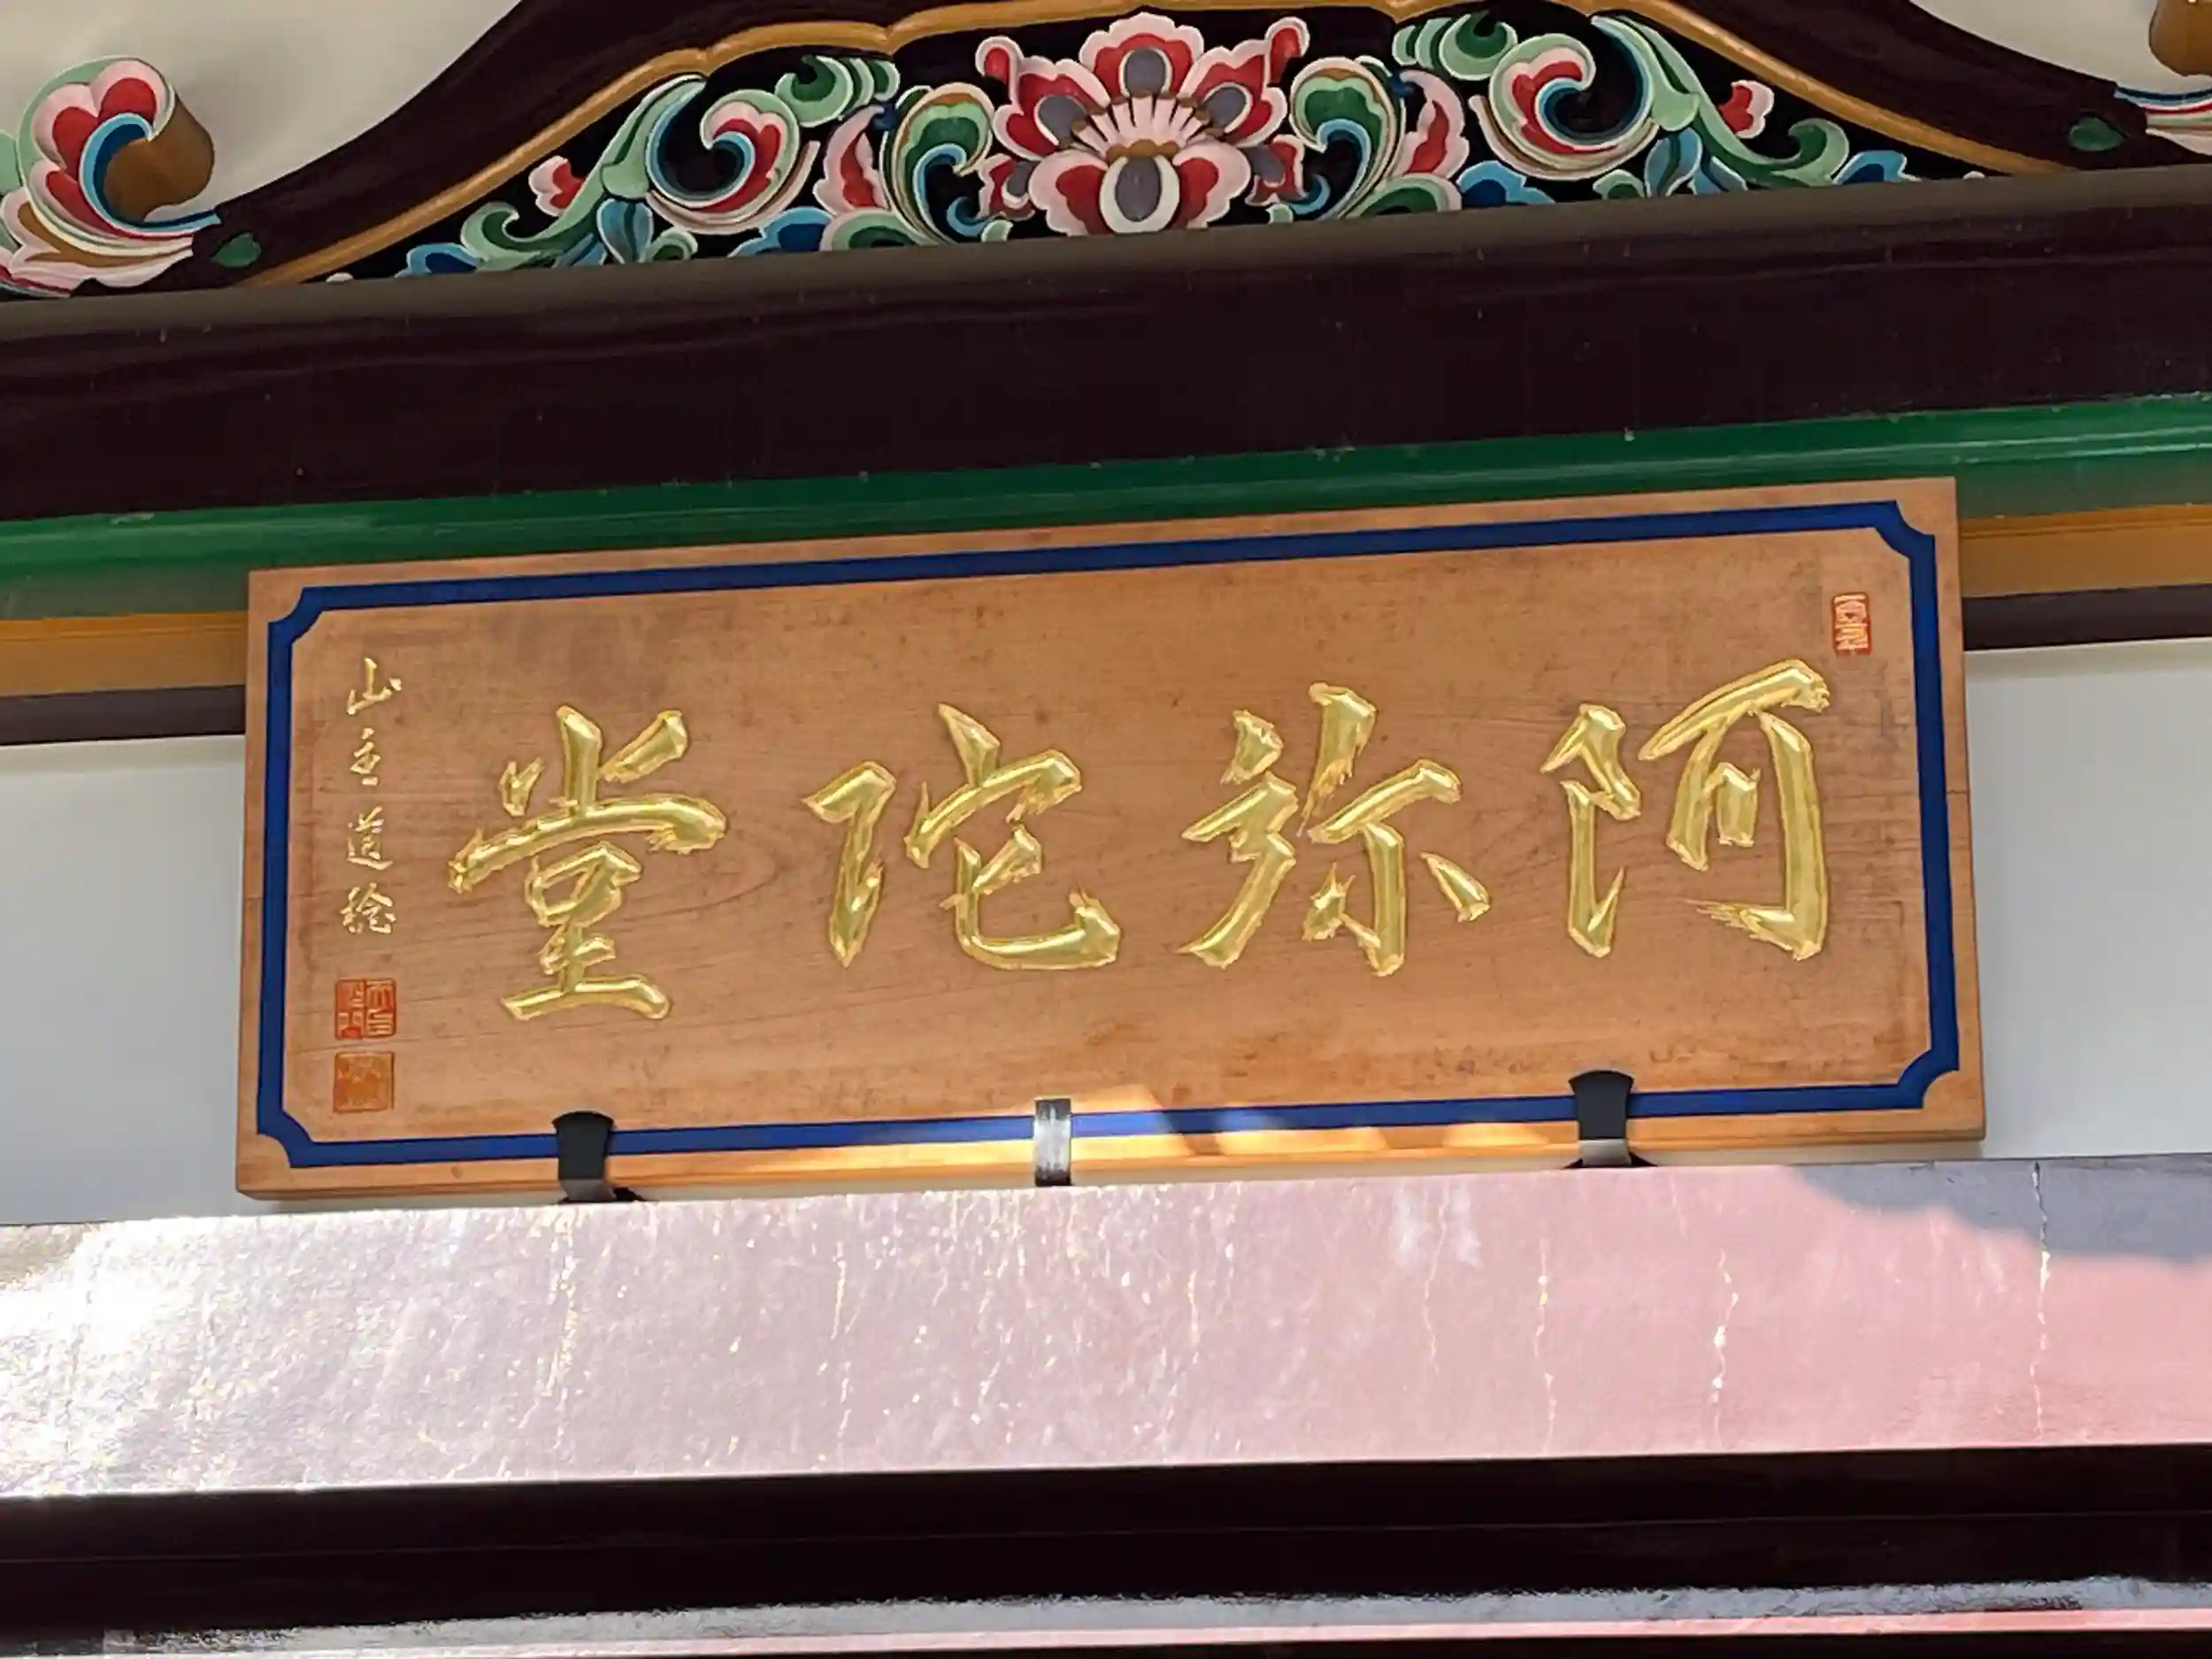 阿弥陀堂
山主道稔